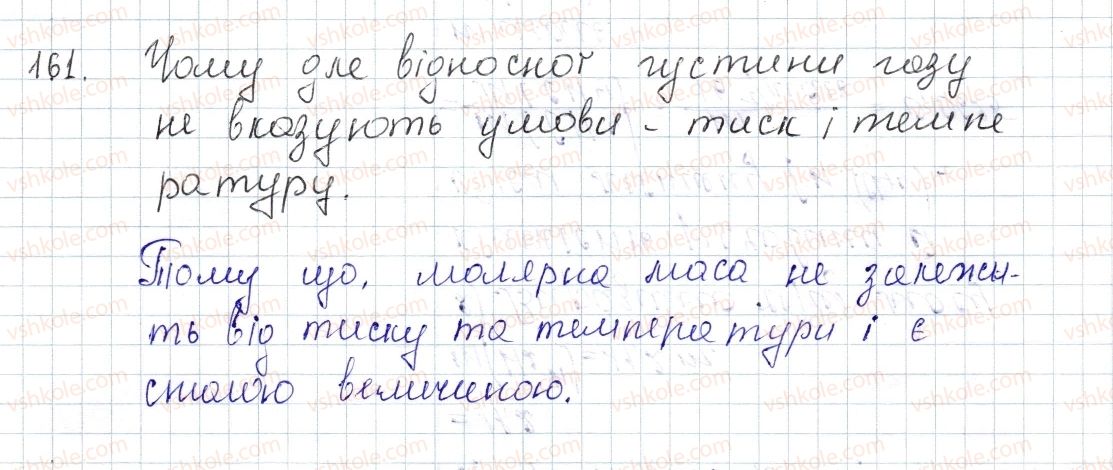 161. Чому для відносної густини газу
не вказують умови - тиск і темпе
ратуру.
Тому що, молярна маса не залежи-
ть від тиску та температури і є
сталою величиною.